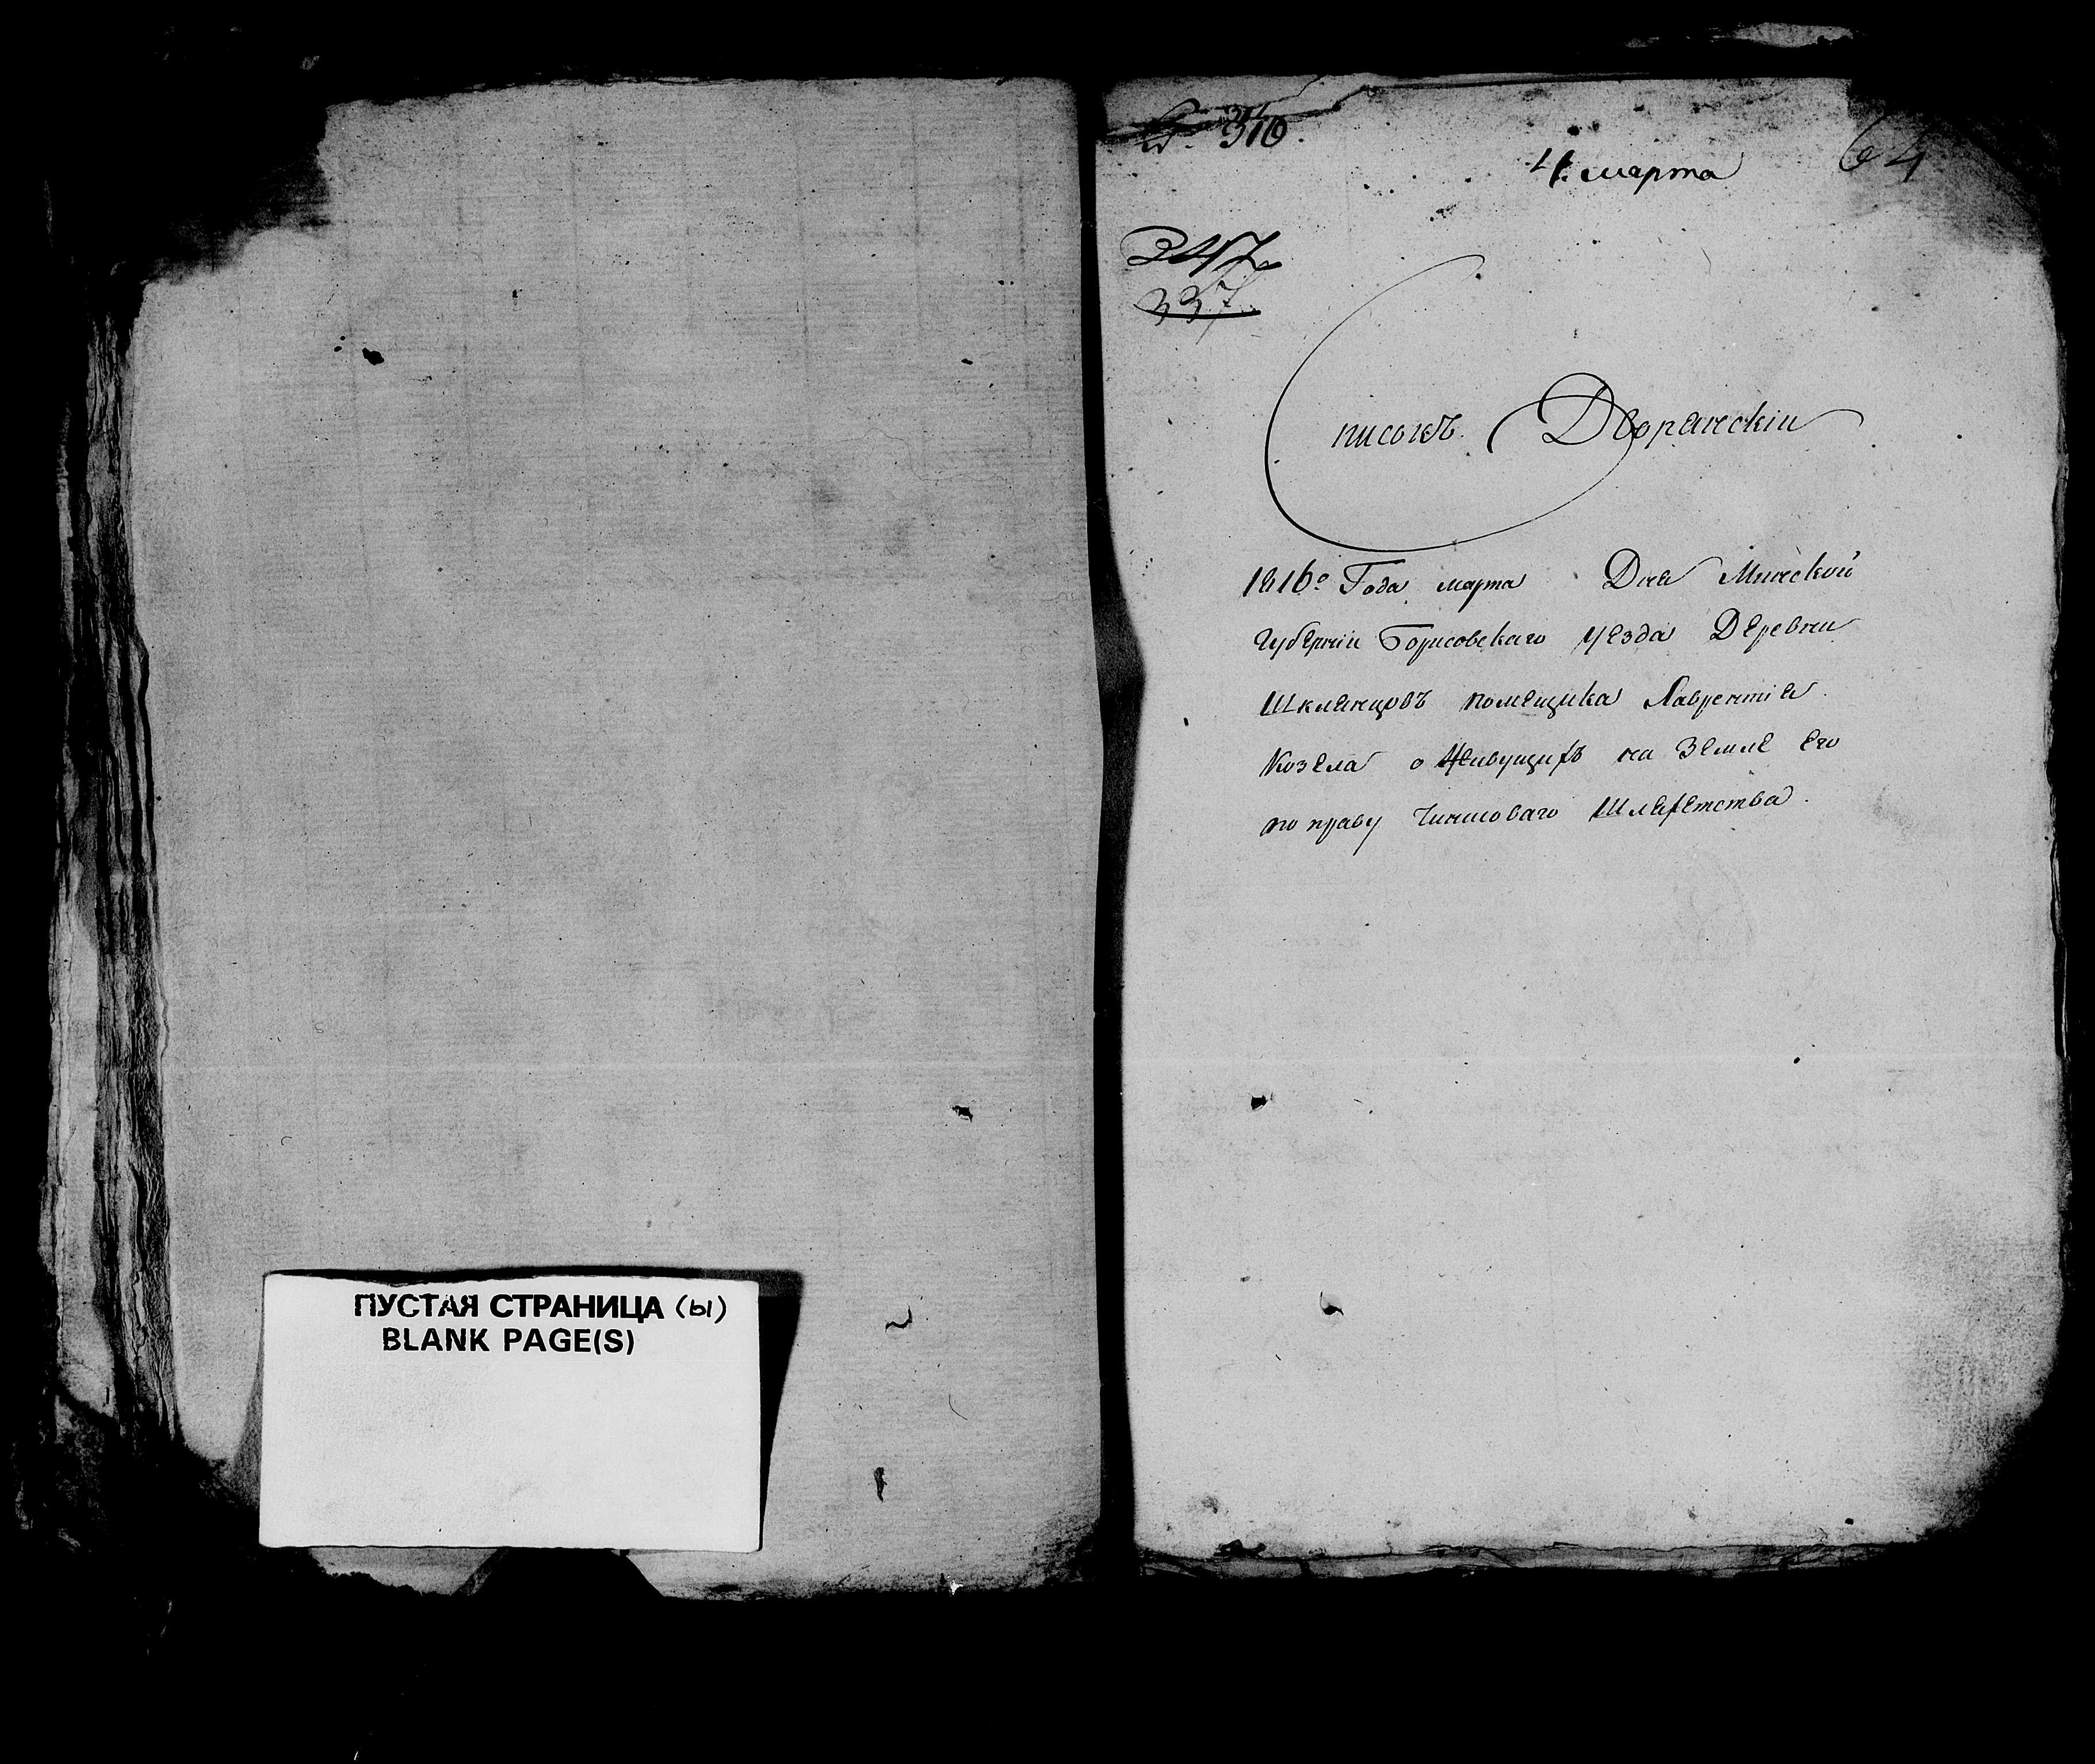 ПУСТАЯ СТРАНИЦА (ы)
BLANK PAGE(S)
310.
4. марта
64
347
337.
Списокъ Дворянскiи
1816го Года марта Дня Минской
Губернiи Борисовскаго уезда Деревни
Шклянцовъ помещика Лаврентiя
Козела о Живущихъ на Земле Его
по праву Чиншоваго Шляхетства.